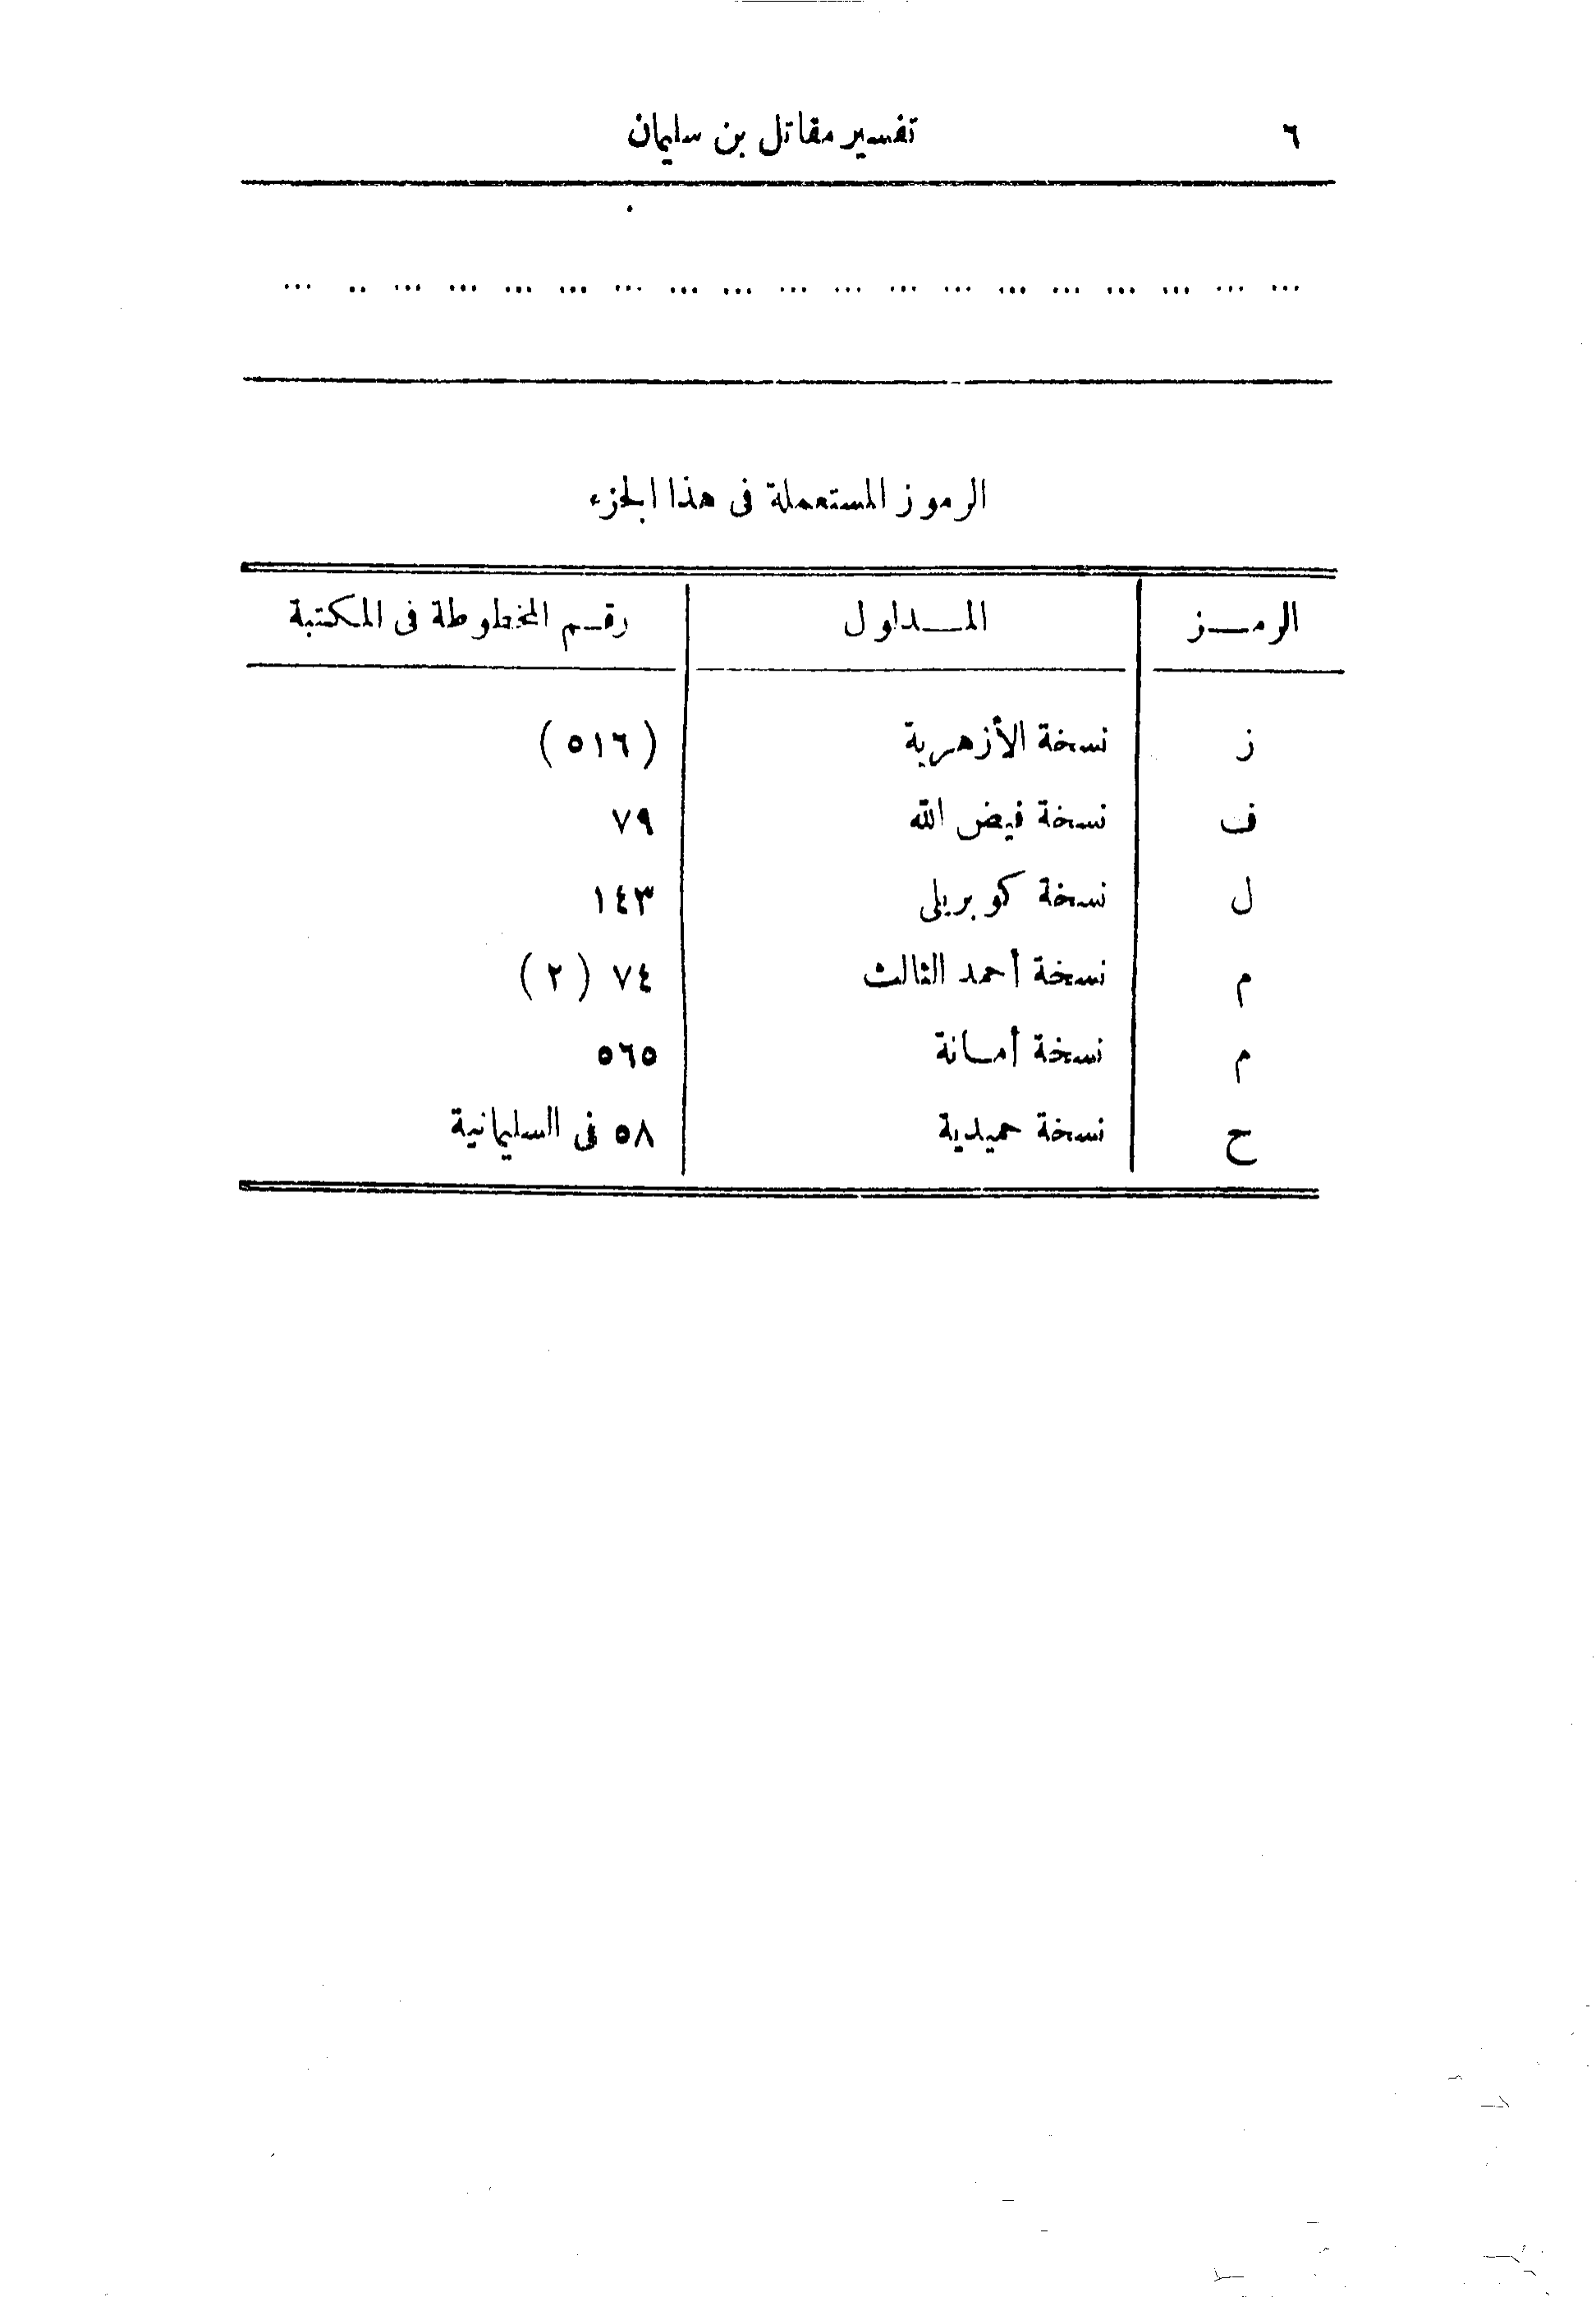 ٦ تفسير مقاتل بن سليمان
... ... ... ... ... ... ... ... ... ... ... ... ... ... ... ... ... .. ...
الرموز المستعملة فى هذا الجزء
الرمــز المــداول رقـم المخطوطة فى المكتبة
ز نسخة الأزهرية (٥١٦)
ف نسخة فيض الله ٧٩
ل نسخة كوبريلى ١٤٣
م نسخة أحمد الثالث ٧٤ (٢)
م نسخة أمـانة ٥٦٥
ح نسخة حميدية ٥٨ فى السليمانية